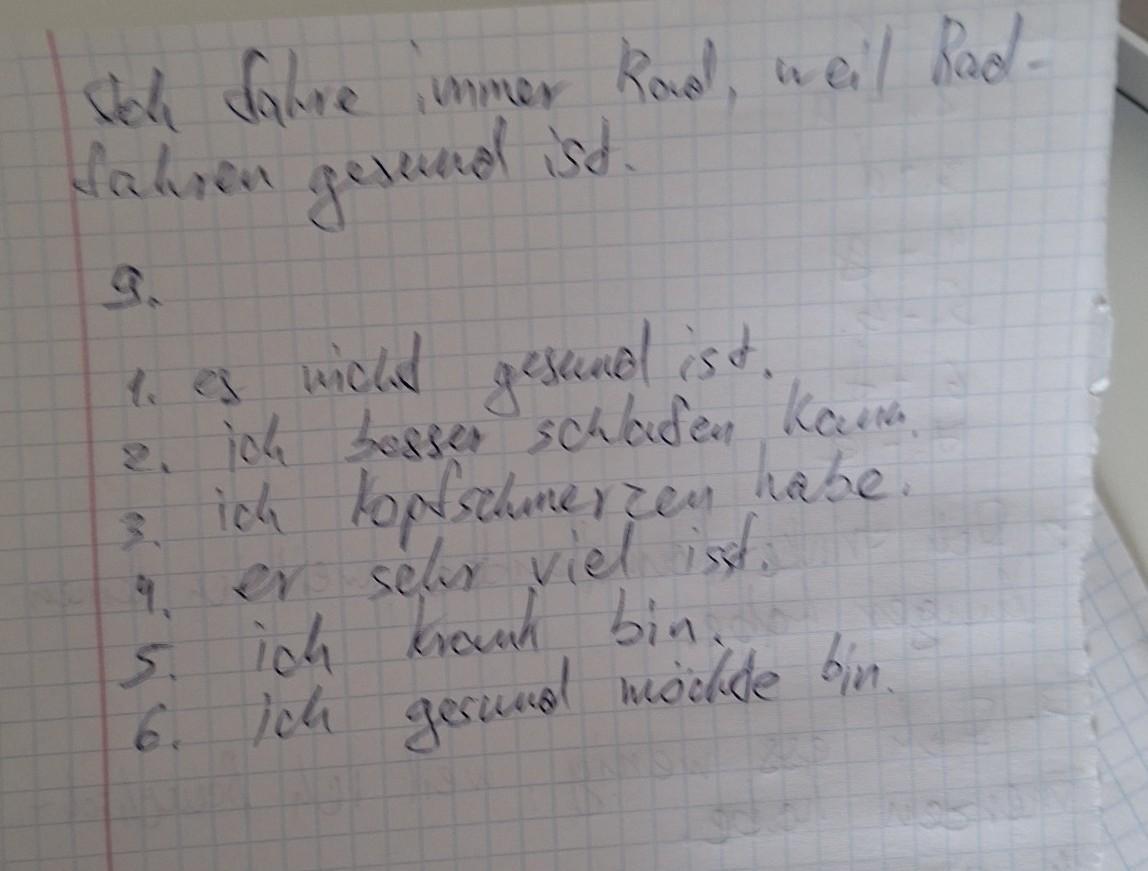 Ich fahre immer Rad, weil Rad-
fahren gesund ist.
9.
1. es nicht gesund ist.
2. ich besser schlafen kann.
3. ich Kopfschmerzen habe.
4. er sehr viel isst.
5. ich krank bin.
6. ich gesund möchte bin.